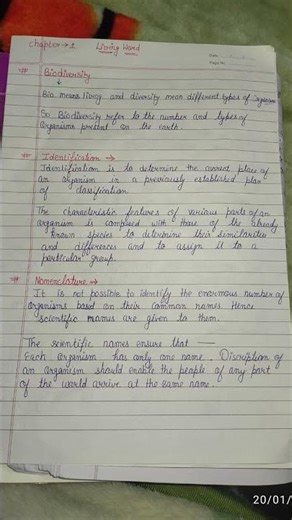 Chapter → 1 Living Word
Date
Page No.
Biodiversity
↓
Bio means living and diversity mean different types of Organism
So Biodiversity refer to the number and types of
Organisms present on the earth.
Identification →
Identification is to determine the correct place of
an organism in a previously established plan
of classification.
The characteristic features of various parts of an
organism is compared with those of the already
known species to determine their similarities
and differences and to assign it to a
particular group.
Nomenclature →
It is not possible to identify the enormous number of
organisms based on their common names. Hence
scientific names are given to them.
The scientific names ensure that —
Each organism has only one name. Discription of
an organism should enable the people of any part
of the world arrive at the same name.
20/01/